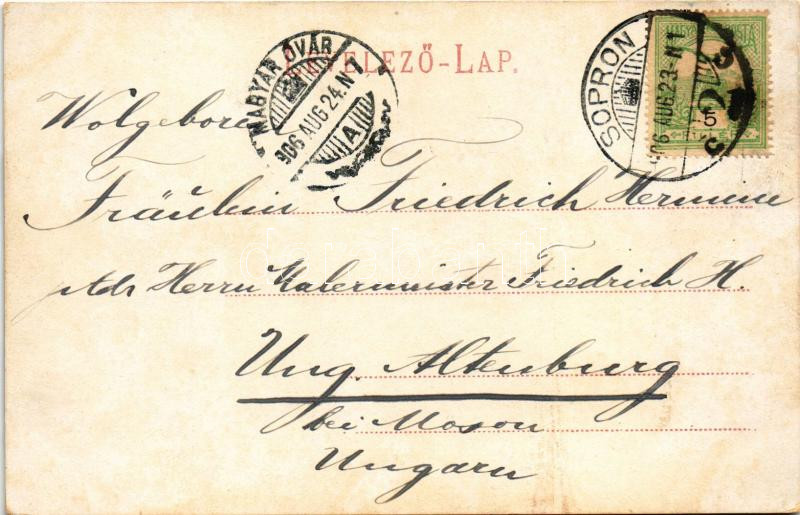 LEVELEZŐ-LAP.
MAGYAR ÓVÁR
906 AUG. 24. N 7
A
SOPRON
906 AUG. 23. N
5
Wolgeboren
Fräulein Friedrich Hermine
Adr Herrn Malermeister Friedrich H.
Ung. Altenburg
bei Moson
Ungarn